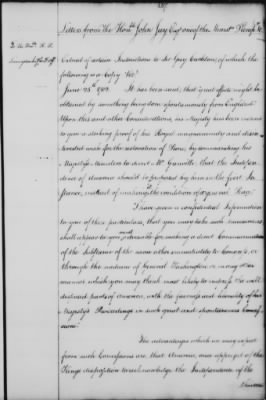 Letters from The Honble John Jay Esqr one of the
To the Honble R. R.
Livingston
Extract of certain Instructions to Sir Guy Carleton, of which the
following is a Copy Vizt
June 25th 1782. It has been said, that great effects might be
obtained by something being done spontaneously from England.
Upon this and other Considerations, his Majesty has been induced
to give a striking proof of his Royal magnanimity and disin-
terested wish for the restoration of Peace, by commanding his
Majesty's Ministers to direct Mr Grenville that the Indepen-
dence of America should be proposed by him in the first In-
stance, instead of making it the condition of a general Treaty.
I have given a confidential Information
to you of these particulars, that you may take such measures as
shall appear to you most advisable for making a direct Communication
of the substance of the same either immediately to Congress, or
through the medium of General Washington or in any other
manner which you may think most likely to impress the well
disposed parts of America, with the fairness and liberality of his
Majesty's Proceedings in such great and spontaneous Conces-
sions.
The advantages which we may expect
from such Concessions are, that America, once apprized of the
King's disposition to acknowledge the Independence of the